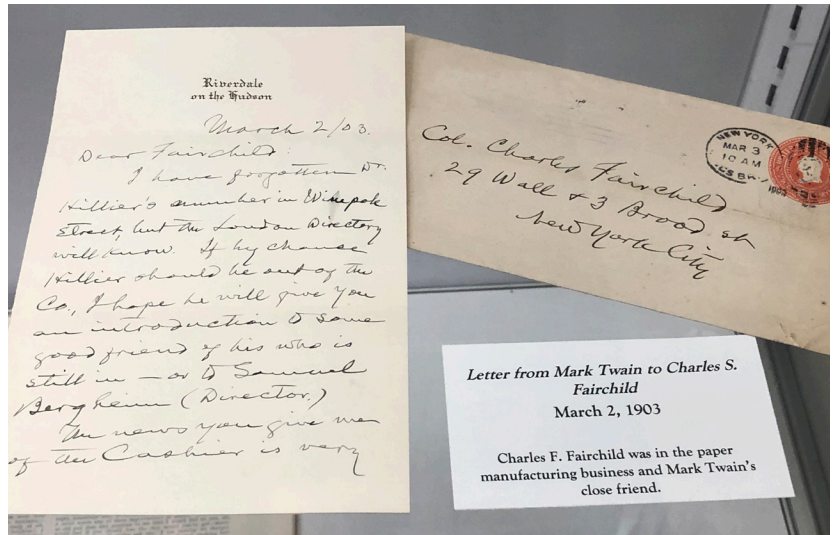 Riverdale
on the Hudson
March 2/03.
Dear Fairchild:
I have forgotten Dr.
Hillier's number in Wimpole
Street, but the London Directory
will know. If by chance
Hillier should be out of the
Co., I hope he will give you
an introduction to some
good friend of his who is
still in — or to Samuel
Bergheim (Director.)
The news you give me
of the Cashier is very
Col. Charles Fairchild
29 Wall & 3 Broad st
New York City
NEW YORK
MAR 3
10 AM
1903
Letter from Mark Twain to Charles S.
Fairchild
March 2, 1903
Charles F. Fairchild was in the paper
manufacturing business and Mark Twain's
close friend.